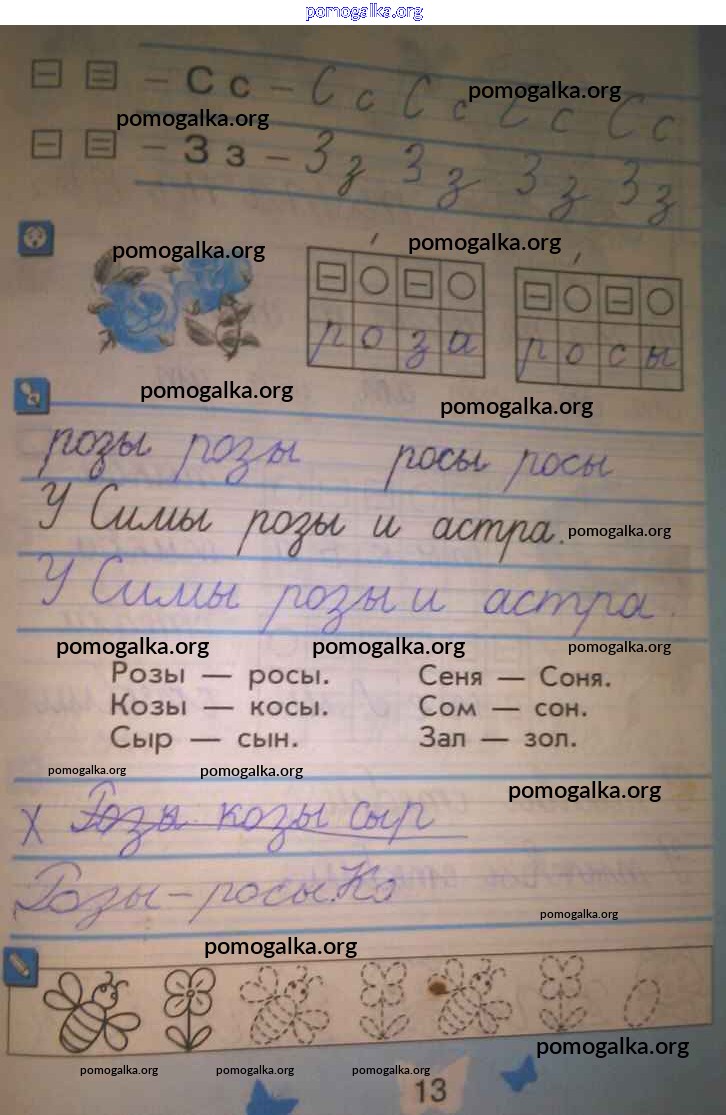 pomogalka.org
– С с – С с С с С с С с
pomogalka.org
pomogalka.org
– З з – З з З з З з З з
pomogalka.org
pomogalka.org
р о з а
р о с ы
pomogalka.org
pomogalka.org
розы розы росы росы
У Симы розы и астра.
pomogalka.org
У Симы розы и астра.
pomogalka.org pomogalka.org pomogalka.org
Розы — росы. Сеня — Соня.
Козы — косы. Сом — сон.
Сыр — сын. Зал — зол.
pomogalka.org pomogalka.org
pomogalka.org
х Розы козы сыр
Розы – росы. Ко
pomogalka.org
pomogalka.org
pomogalka.org
pomogalka.org pomogalka.org pomogalka.org
13